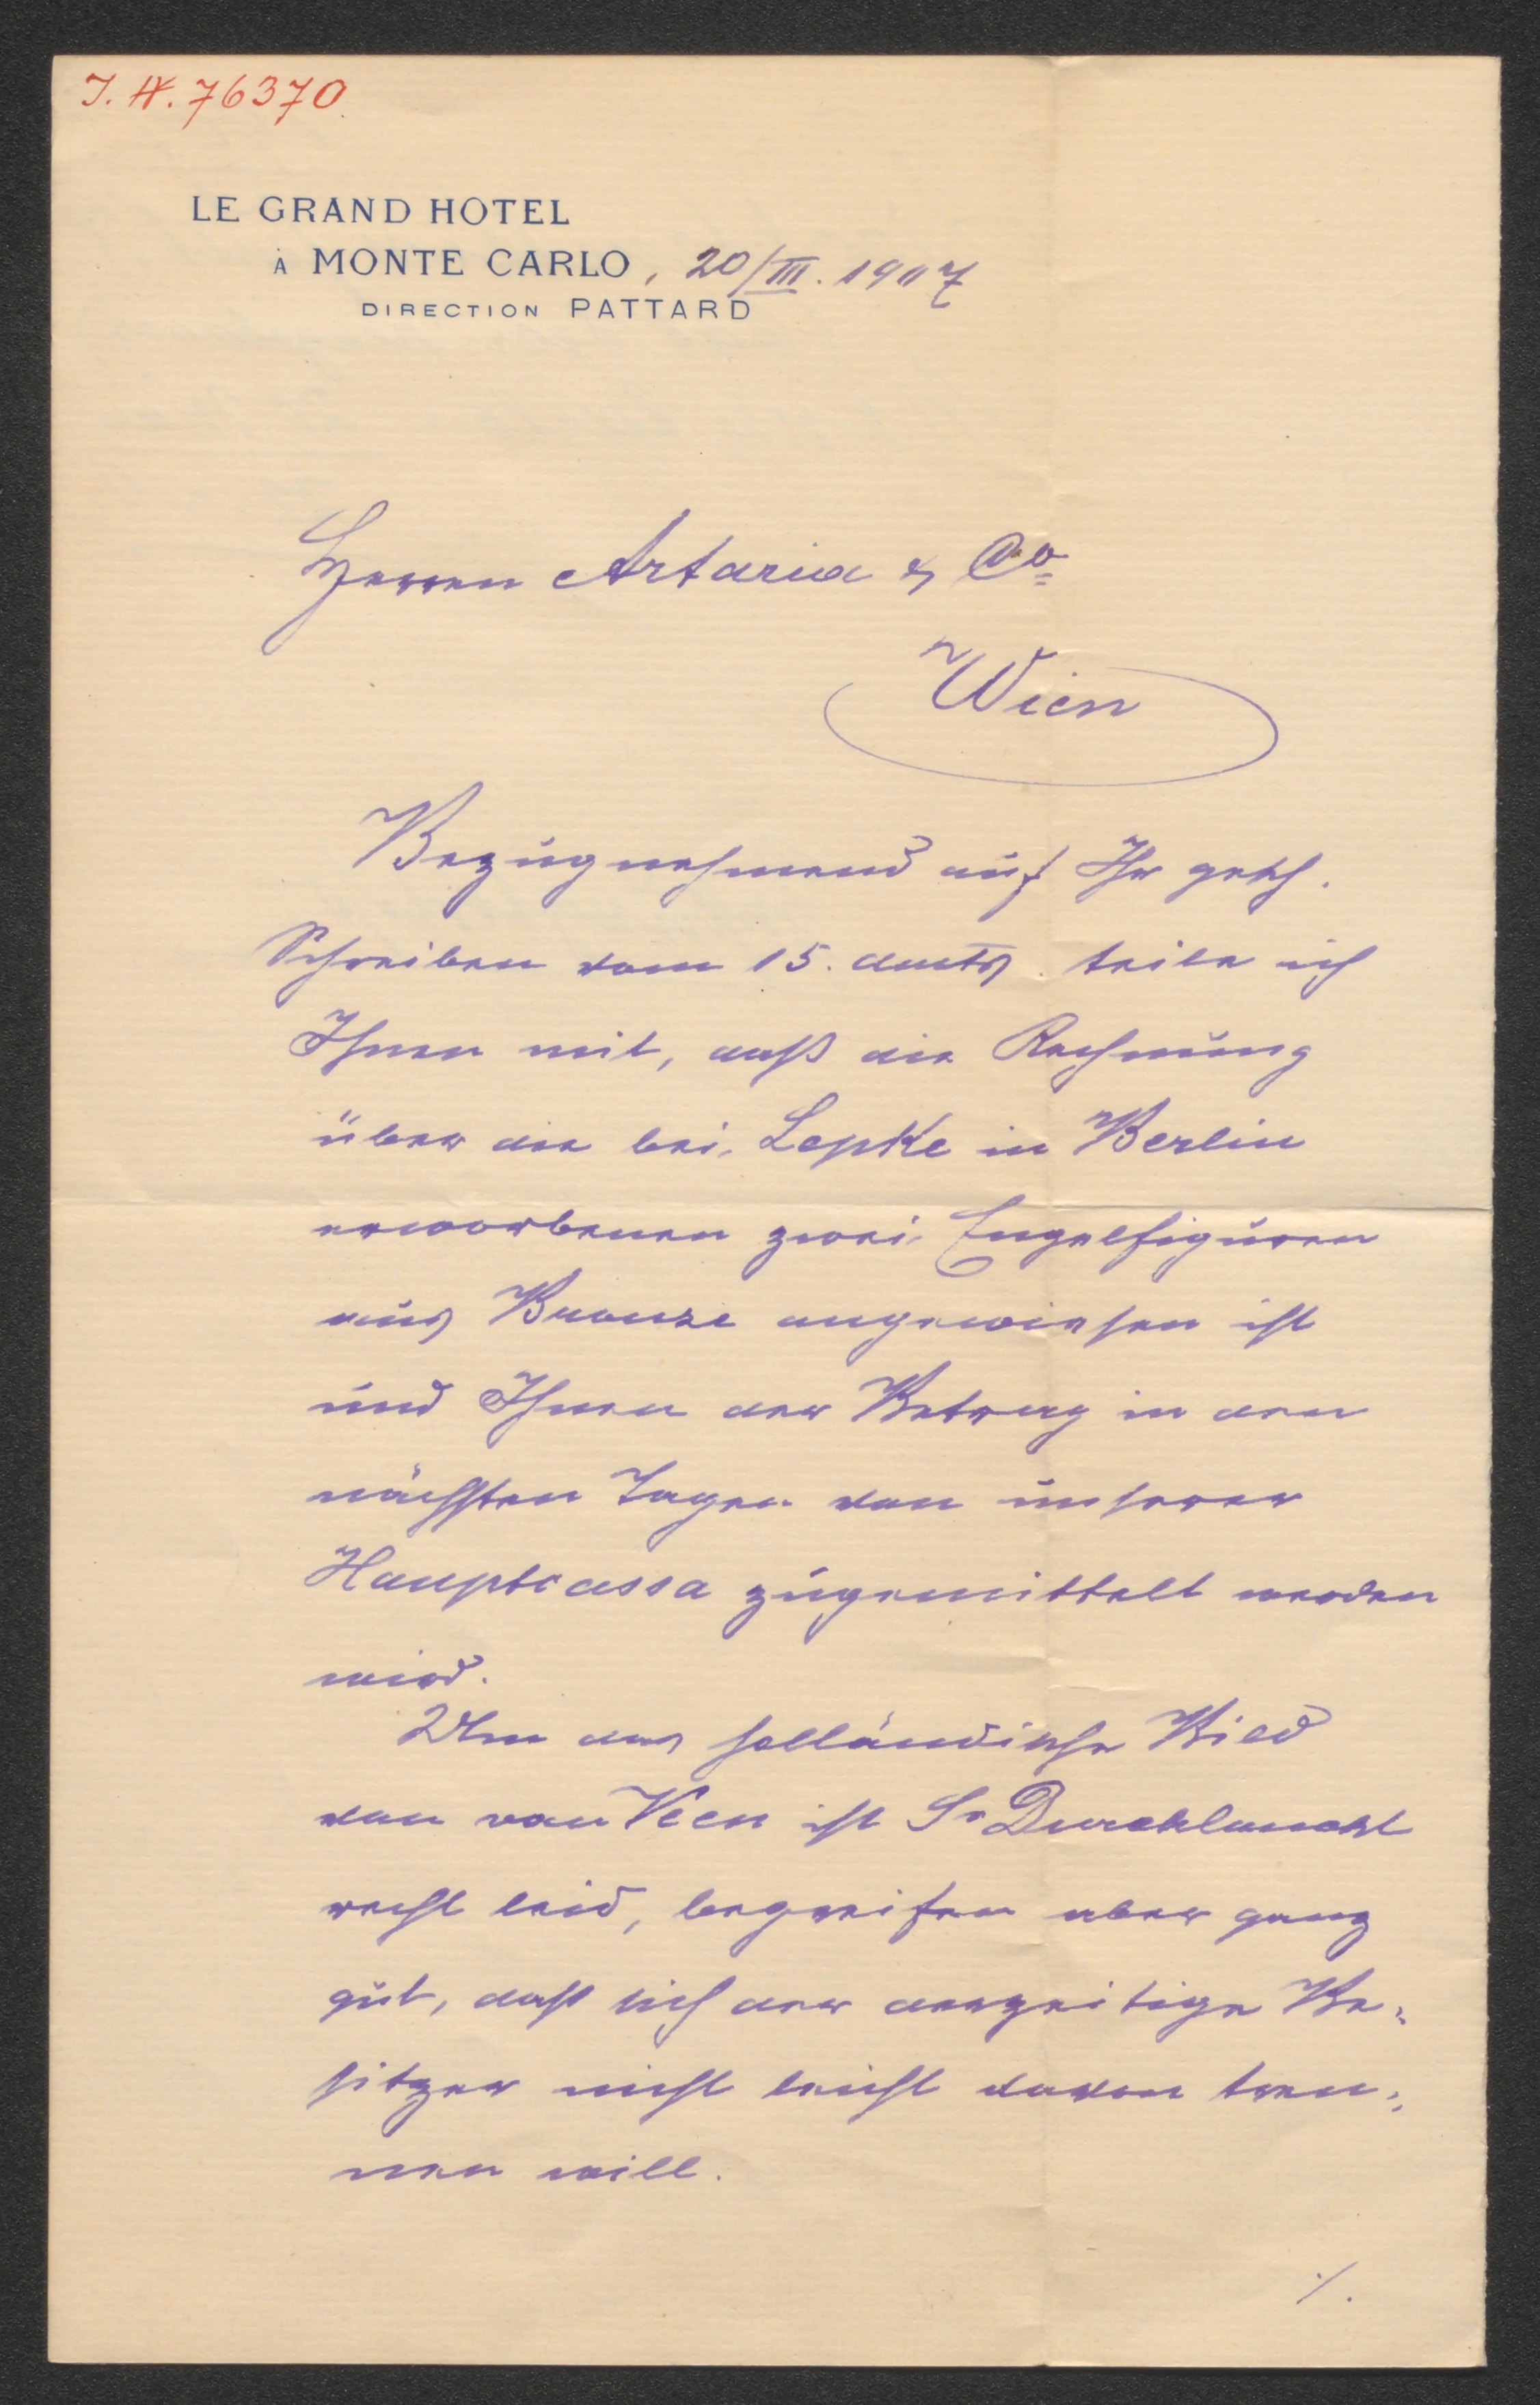 J. N. 76370
LE GRAND HOTEL
À MONTE CARLO, 20/III. 1907
DIRECTION PATTARD
Herren Artaria & Co
Wien
Bezugnehmend auf Ihr gesch.
Schreiben vom 15. teile ich
Ihnen mit, daß die Rechnung
über die bei Lepke in Berlin
erworbenen zwei Engelfiguren
aus Bronze angewiesen ist
und Ihnen der Betrag in den
nächsten Tagen von unserer
Hauptcassa zugemittelt werden
wird.
Um das holländische Bild
von van Veen ist Sr Durchlaucht
recht leid, begreifen aber ganz
gut, daß sich der derzeitige Be-
sitzer nicht leicht davon tren-
nen will.
./.